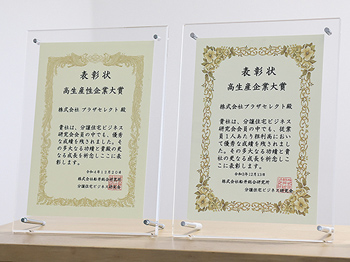 表彰状
高生産性企業大賞
株式会社 プラザセレクト 殿
貴社は、分譲住宅ビジネス
研究会会員の中でも、優秀
な成績を残されました。そ
の多大なる功績と貴殿の更
なる成長を祈念しここに表
彰します。
株式会社船井総合研究所
分譲住宅ビジネス研究会
表彰状
高生産性企業大賞
株式会社 プラザセレクト 殿
貴社は、分譲住宅ビジネス
研究会会員の中でも、従業
員1人あたり粗利高におい
て優秀な成績を残されまし
た。その多大なる功績と貴
社の更なる成長を祈念しこ
こに表彰します。
令和3年12月10日
株式会社船井総合研究所
分譲住宅ビジネス研究会